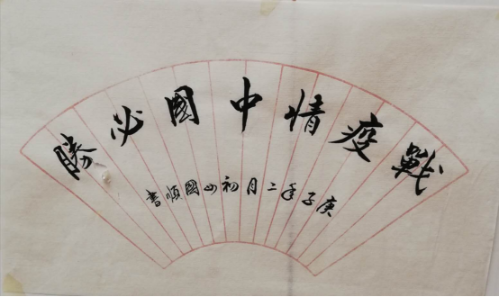 戰疫情中國必勝
庚子年二月初四國順書